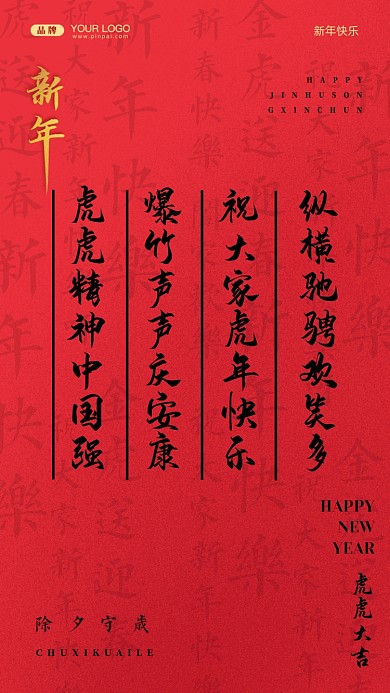 品牌
YOUR LOGO
www.pinpai.com
新年快乐
新年
HAPPY
JINHUSON
GXINCHUN
纵横驰骋欢笑多
祝大家虎年快乐
爆竹声声庆安康
虎虎精神中国强
HAPPY
NEW
YEAR
虎虎大吉
除夕守歳
CHUXIKUAILE